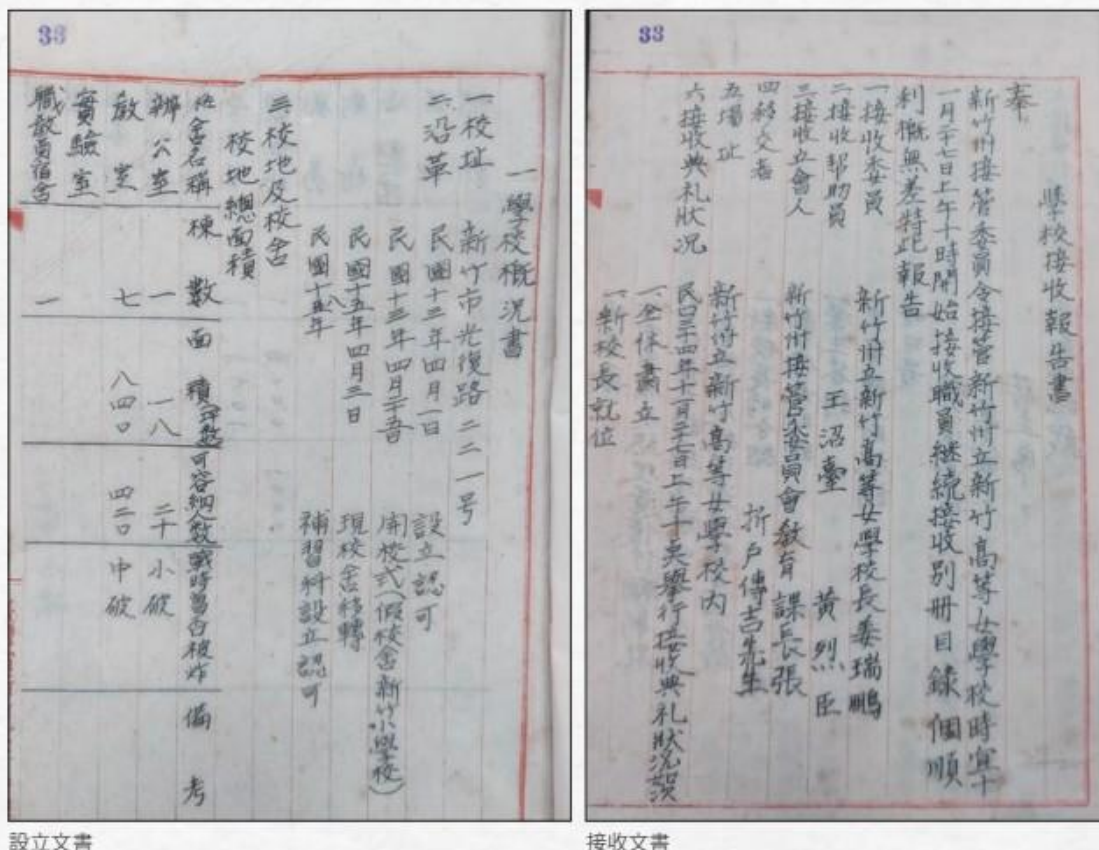 33
一學校概況書
一校址 新竹市光復路二二一号
二沿革 民國十三年四月一日 設立認可
民國十三年四月二十五日 開校式(假校舍新竹小學校)
民國十五年四月三日 現校舍移轉
民國十八年 補習科設立認可
三校地及校舍
校地總面積
校舍名稱 棟數 面積 可容納人數 戰時曾否被炸 備考
辦公室 一 一八 二十 小破
教室 七 八四〇 四二〇 中破
實驗室
職教員宿舍 一
設立文書
33
學校接收報告書
奉
新竹州接管委員令接管新竹州立新竹高等女學校時宜十
一月二十七日上午十時開始接收職員継続接收別冊目錄個順
利概無差特此報告
一接收委員 新竹州立新竹高等女學校長姜瑞鵬
二接收帮助員 王沼臺 黃烈臣
三接收立會人 新竹州接管委員會教育課長張
四移交者 折戶傳吉先生
五場址 新竹州立新竹高等女學校內
六接收典礼狀况 民国三十四年十一月二十七日上午十点舉行接收典礼狀况
一全体肅立
一新校長就位
接收文書